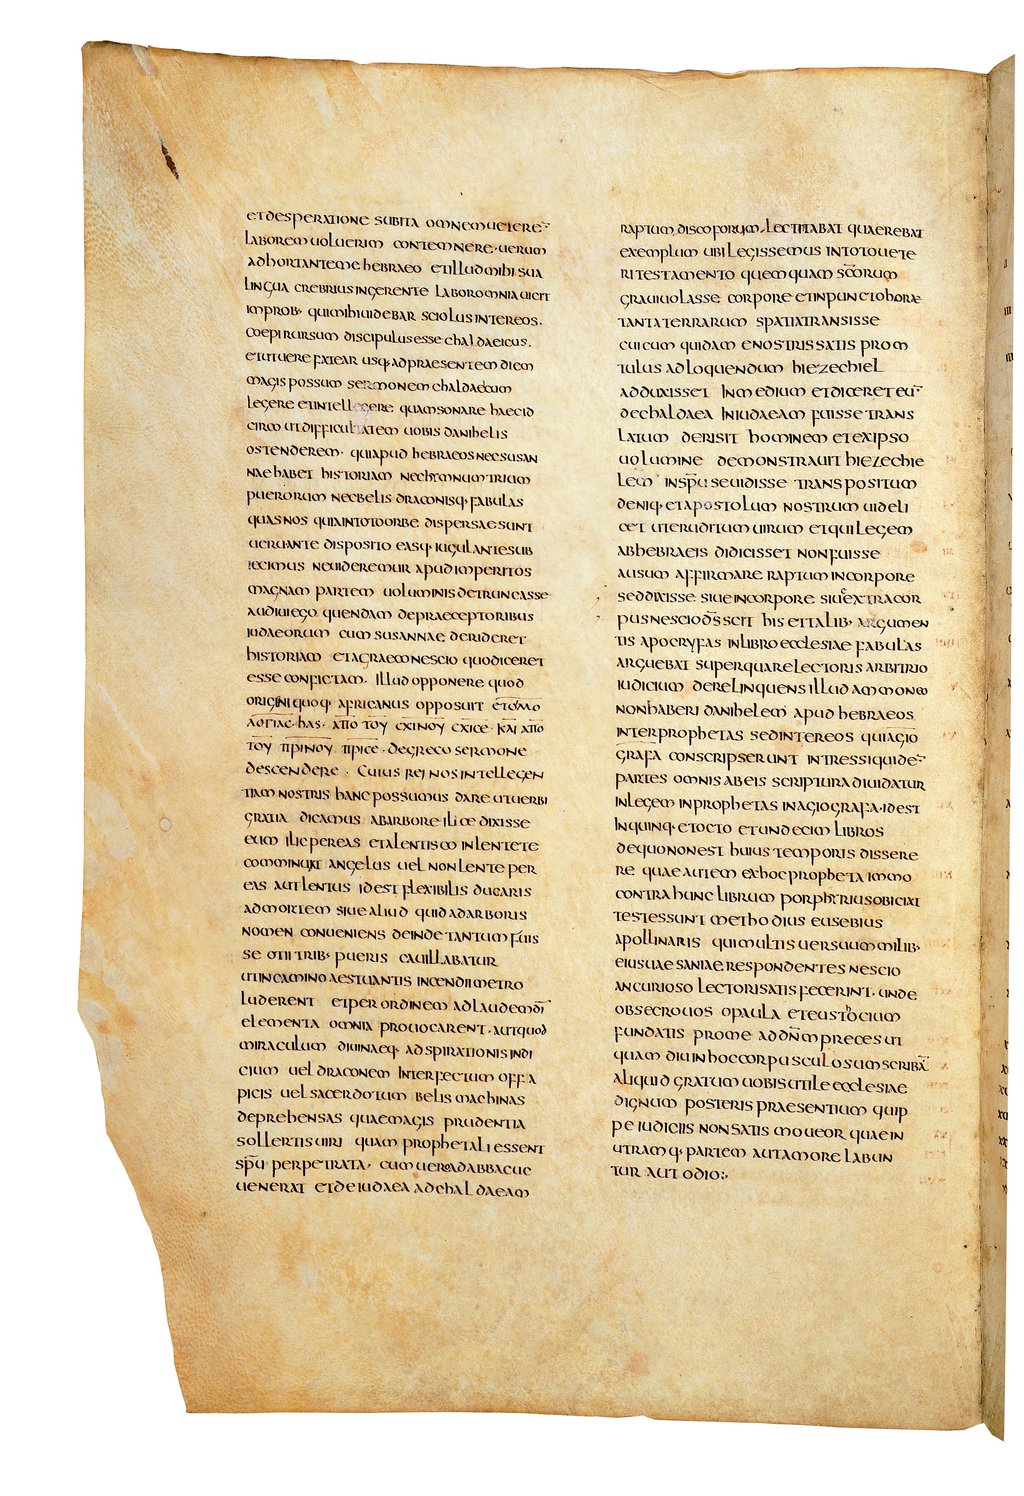 et desperatione subita omnem uetere
laborem uoluerim contemnere · uerum
adhortante me hebraeo et illud mihi sua
lingua crebrius ingerente labor omnia uicit
improb· qui mihi uidebar sciolus inter eos ·
coepi rursum discipulus esse chaldaeicus ·
et ut uere fatear usq· ad praesentem diem
magis possum sermonem chaldaeicum
legere et intellegere quam sonare haec id
circo ut difficultatem uobis danihelis
ostenderem · qui apud hebraeos nec susan
nae habet historiam nec hymnum trium
puerorum nec belis draconisq· fabulas
quas nos quia in toto orbe dispersae sunt
ueru ante disposito easq· iugulante sub
iecimus ne uideremur apud imperitos
magnam partem uoluminis detruncasse
audiui ego quendam de praeceptoribus
iudaeorum cum susannae derideret
historiam et a graeco nescio quo diceret
esse confictam · illud opponere quod
origini quoq· africanus opposuit
has · απο του σχινου σχισε · και απο
του πρινου πρισε · de greco sermone
descendere · Cuius rei nos intellegen
tiam nostris hanc possumus dare ut uerbi
gratia dicamus ab arbore ilice dixisse
eum ilic pereas et a lentisco in lente te
comminuat angelus uel non lente per
eas aut lentus id est flexibilis ducaris
ad mortem siue aliud quid ad arboris
nomen conueniens deinde tantum fuis
se otii trib· pueris cauillabatur
ut in camino aestuantis incendii metro
luderent et per ordinem ad laudem dī
elementa omnia prouocarent · aut quod
miraculum diuinaeq· adspirationis indi
cium uel draconem Interfectum offa
picis uel sacerdotum belis machinas
deprehensas quae magis prudentia
sollertis uiri quam prophetali essent
spu perpetrata · cum uero ad abbacuc
uenerat et de iudaea ad chaldaeam
raptum discoforum lectitabat quaerebat
exemplum ubi legissemus in toto uete
ri testamento quemquam scorum
graui uolasse corpore et in puncto horae
tanta terrarum spatia transisse
cui cum quidam e nostris satis prom
tulus ad loquendum hiezechiel
adduxisset In medium et diceret eu
de chaldaea In iudaeam fuisse trans
latum derisit hominem et ex ipso
uolumine demonstrauit hiezechie
lem In spu se uidisse transpositum
deniq· et apostolum nostrum uideli
cet ut eruditum uirum et qui legem
ab hebraeis didicisset non fuisse
ausum affirmare raptum in corpore
sed dixisse siue in corpore siue extra cor
pus nescio ds scit his et talib· argumen
tis apocryfas in libro ecclesiae fabulas
arguebat super qua re lectoris arbitrio
iudicium derelinquens illud ammoneo
non haberi danihelem apud hebraeos
inter prophetas sed inter eos qui agio
grafa conscripserunt in tres siquide
partes omnis ab eis scriptura diuidatur
In legem in prophetas in agiografa · id est
In quinq· et octo et undecim libros
de quo non est huius temporis dissere
re quae autem ex hoc propheta immo
contra hunc librum porphyrius obiciat
testes sunt methodius eusebius
apollinaris qui multis uersuum milib·
eius uaesaniae respondentes nescio
an curioso lectori satis fecerint · unde
obsecro uos o paula et eustochium
fundatis pro me ad dnm preces ut
quam diu in hoc corpusculo sum scribā
aliquid gratum uobis utile ecclesiae
dignum posteris praesentium quip
pe iudiciis non satis moueor quae in
utramq· partem aut amore labun
tur aut odio